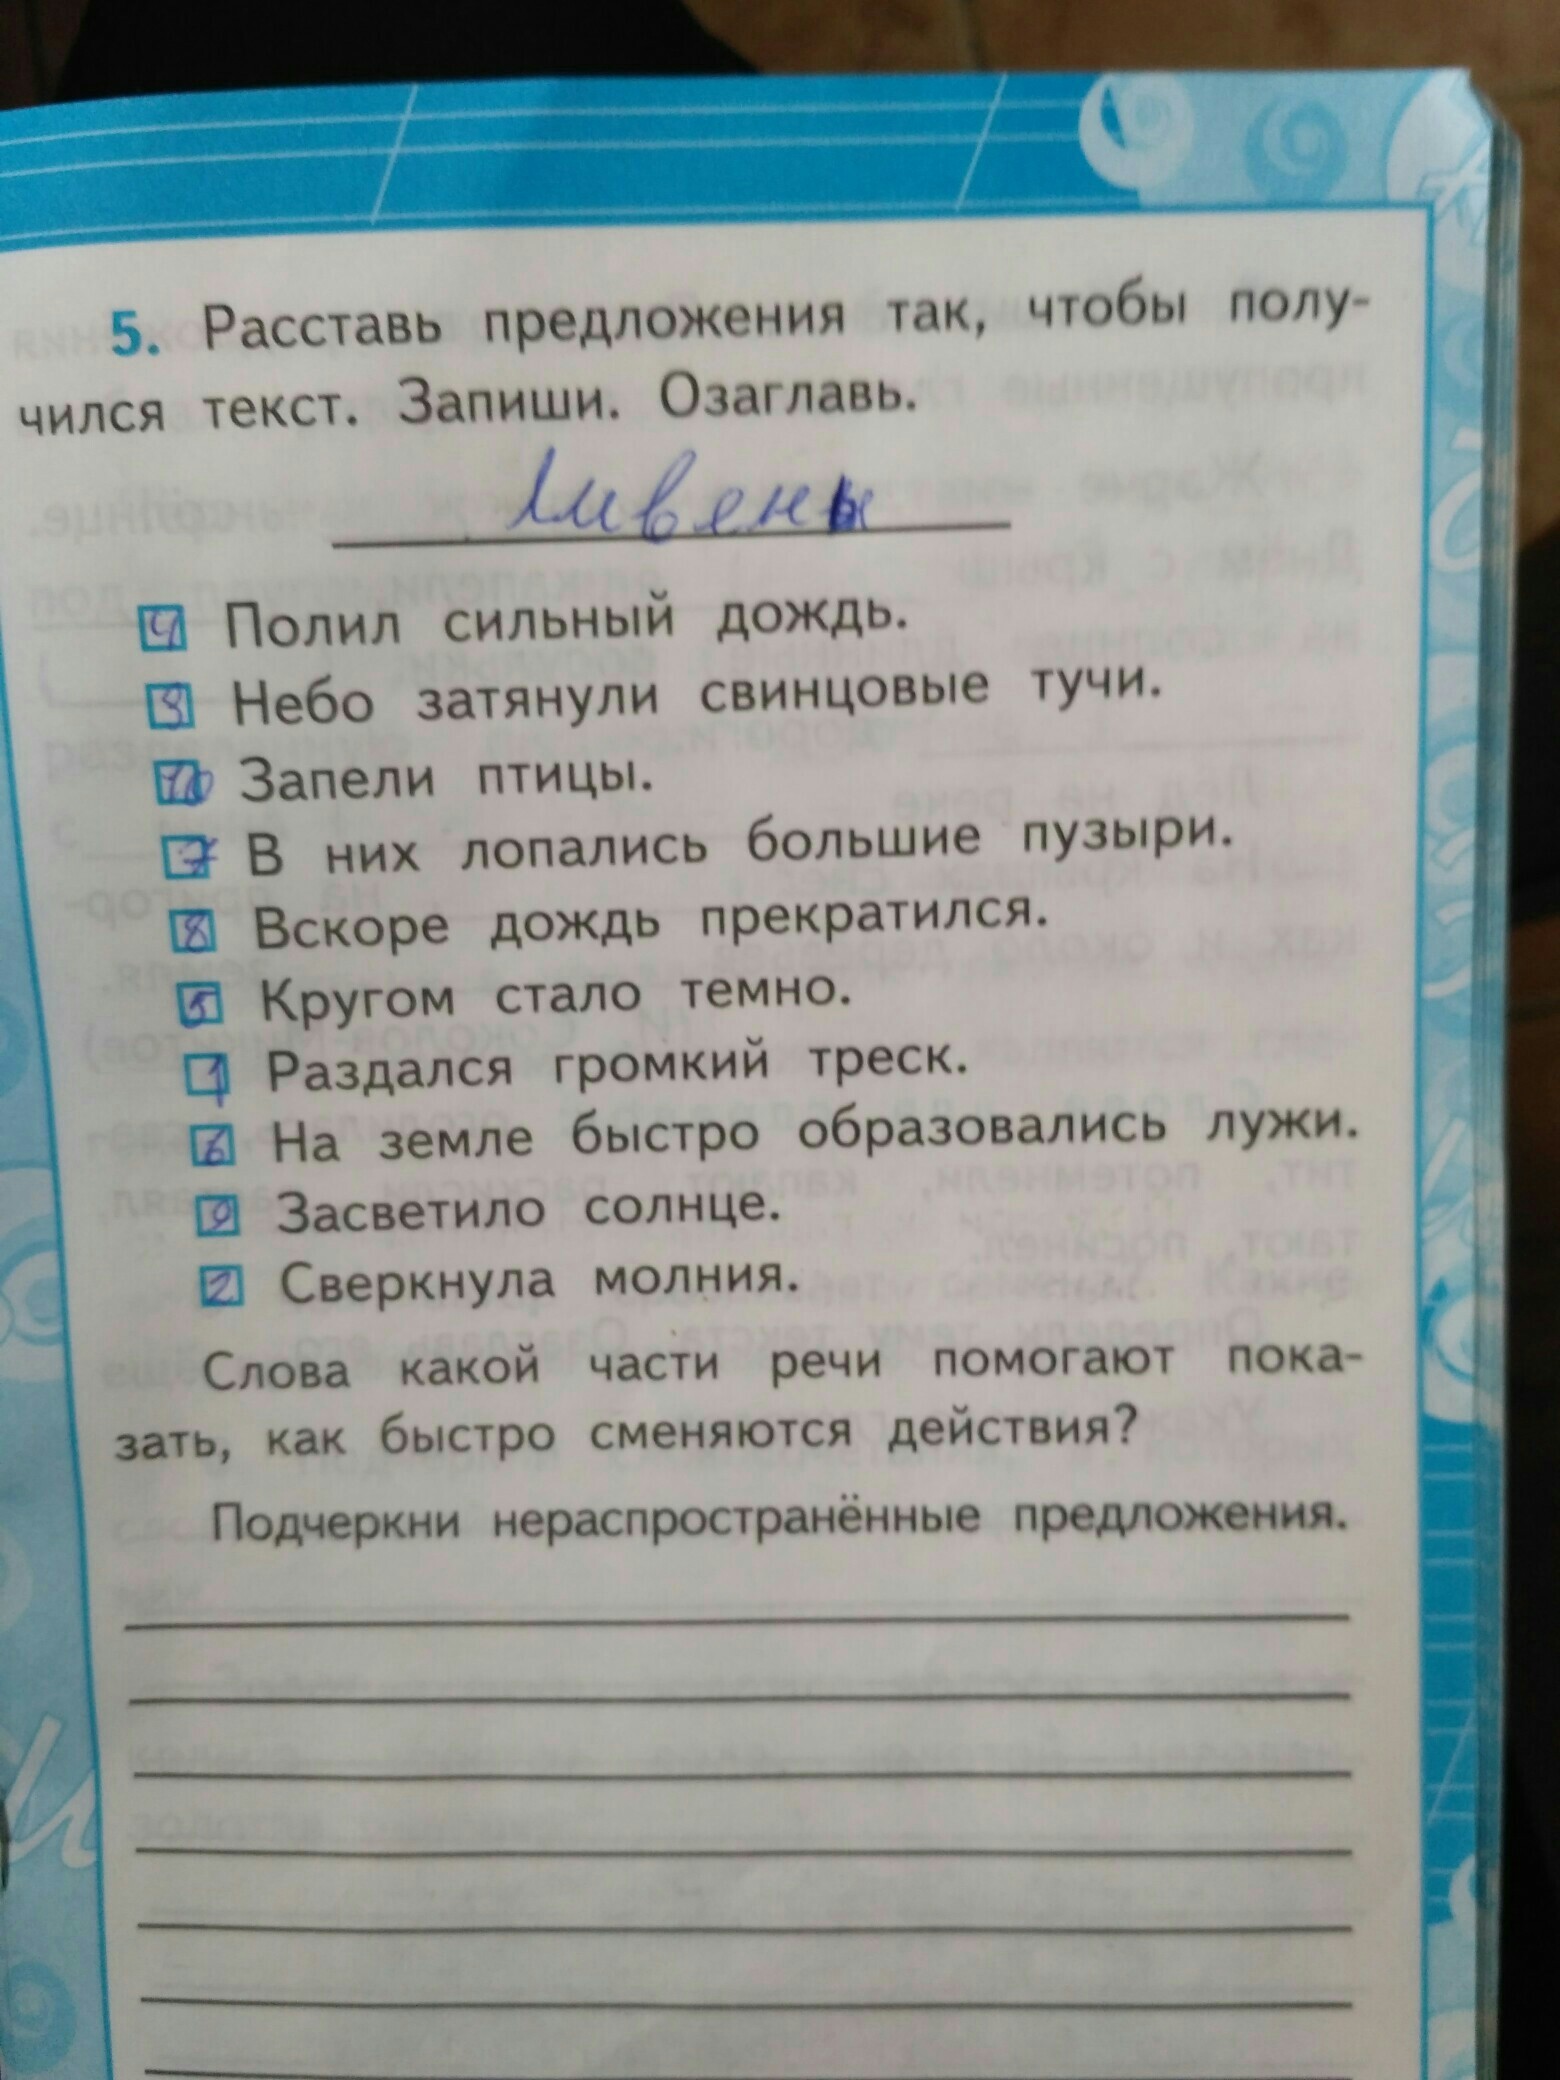 5. Расставь предложения так, чтобы полу-
чился текст. Запиши. Озаглавь.
Ливень
4 Полил сильный дождь.
3 Небо затянули свинцовые тучи.
10 Запели птицы.
7 В них лопались большие пузыри.
8 Вскоре дождь прекратился.
5 Кругом стало темно.
1 Раздался громкий треск.
6 На земле быстро образовались лужи.
9 Засветило солнце.
2 Сверкнула молния.
Слова какой части речи помогают пока-
зать, как быстро сменяются действия?
Подчеркни нераспространённые предложения.